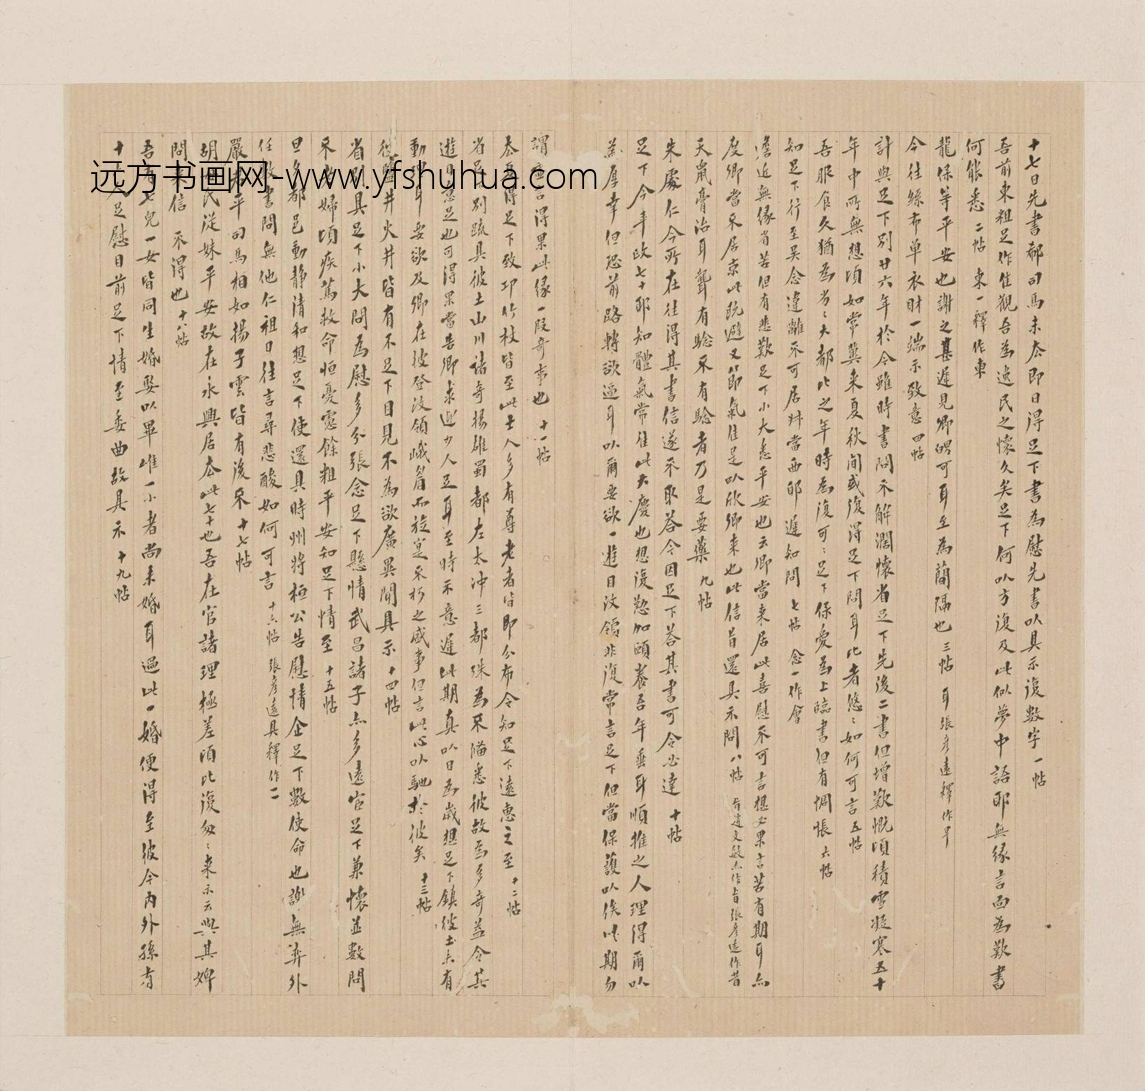 十七日先書郗司馬未厺即日得足下書為慰先書以具示復數字 一帖
吾前東粗足作佳觀吾為逸民之懷久矣足下何以方復及此似夢中語耶無緣言面為歎書
何能悉 二帖 東一釋作車
龍保等平安也謝之甚遲見卿舅可耳至為蕳隔也 三帖 耳張彥遠釋作早
今往絲布單衣財一端示致意 四帖
計與足下別廿六年於今雖時書問不解濶懷省足下先後二書但增歎慨頃積雪凝寒五十
年中所無想頃如常冀來夏秋間或復得足下問耳比者悠〻如何可言 五帖
吾服食久猶為劣〻大都比之年時為復可〻足下保愛為上臨書但有惆悵 六帖
知足下行至吳念違離不可居叔當西耶 遲知問 七帖 念一作會
瞻近無緣省苦但有悲歎足下小大悉平安也云卿當來居此喜慰不可言想必果言苦有期耳亦
度卿當不居京此既避又節氣佳是以欣卿來也此信旨還具示問 八帖 旨遠文敏亦作旨張彥遠作昔
天鼠膏治耳聾有驗不有驗者乃是要藥 九帖
朱處仁今所在往得其書信遂不取答今因足下答其書可令必達 十帖
足下今年政七十耶知體氣常佳此大慶也想復懃加頤養吾年垂耳順推之人理得爾以
為厚幸但恐前路轉欲逼耳以爾要欲一遊目汶領非復常言足下但當保護以俟此期勿
謂虛言得果此緣一段奇事也 十一帖
厺夏得足下致邛竹杖皆至此士人多有尊老者皆即分布令知足下遠惠之至 十二帖
省足下別疏具彼土山川諸奇揚雄蜀都左太冲三都殊為不備悉彼故為多奇益令其
遊目意足也可得果當告卿求迎少人足耳至時示意遲此期真以日為歲想足下鎮彼土未有
動理耳要欲及卿在彼登汶領峨眉而旋實不朽之盛事但言此心以馳於彼矣 十三帖
彼鹽井火井皆有不足下目見不為欲廣異聞具示 十四帖
省別具足下小大問為慰多分張念足下懸情武昌諸子亦多遠宦足下兼懷並數問
不老婦頃疾篤救命恒憂慮餘粗平安知足下情至 十五帖
旦夕都邑動靜清和想足下使還具時州將桓公告慰情企足下數使命也謝無奕外
任數書問無他仁祖日往言尋悲酸如何可言 十六帖 張彥遠具釋作二
嚴君平司馬相如揚子雲皆有後不 十七帖
胡母氏從妹平安故在永興居厺此七十也吾在官諸理極差頃比復匆〻來示云與其婢
問來信 不得也 十八帖
吾有七兒一女皆同生婚娶以畢唯一小者尚未婚耳過此一婚便得至彼今內外孫有
十六人足慰目前足下情至委曲故具示 十九帖
远方书画网-www.yfshuhua.com